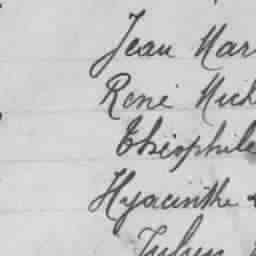 Jean Mar
René Mich
Théophile
Hyacinthe
Julien